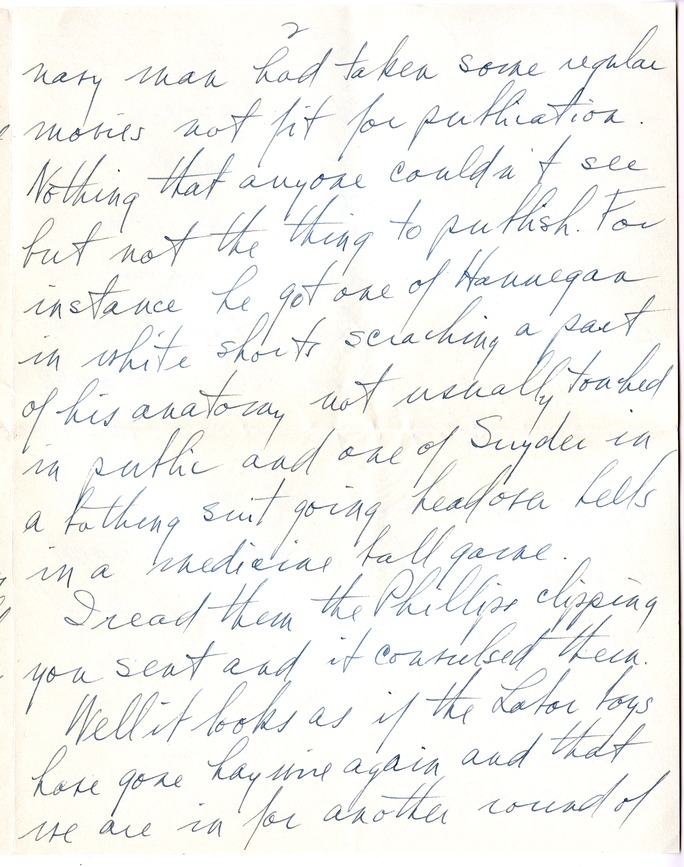 2
navy man had taken some regular
movies not fit for publication.
Nothing that anyone couldn't see
but not the thing to publish. For
instance he got one of Hannegan
in white shorts scraching a part
of his anatomy not usually touched
in public and one of Snyder in
a bathing suit going head over hells
in a medicine ball game.
I read them the Phillips clipping
you sent and it convulsed them.
Well it looks as if the Labor boys
have gone haywire again and that
we are in for another round of